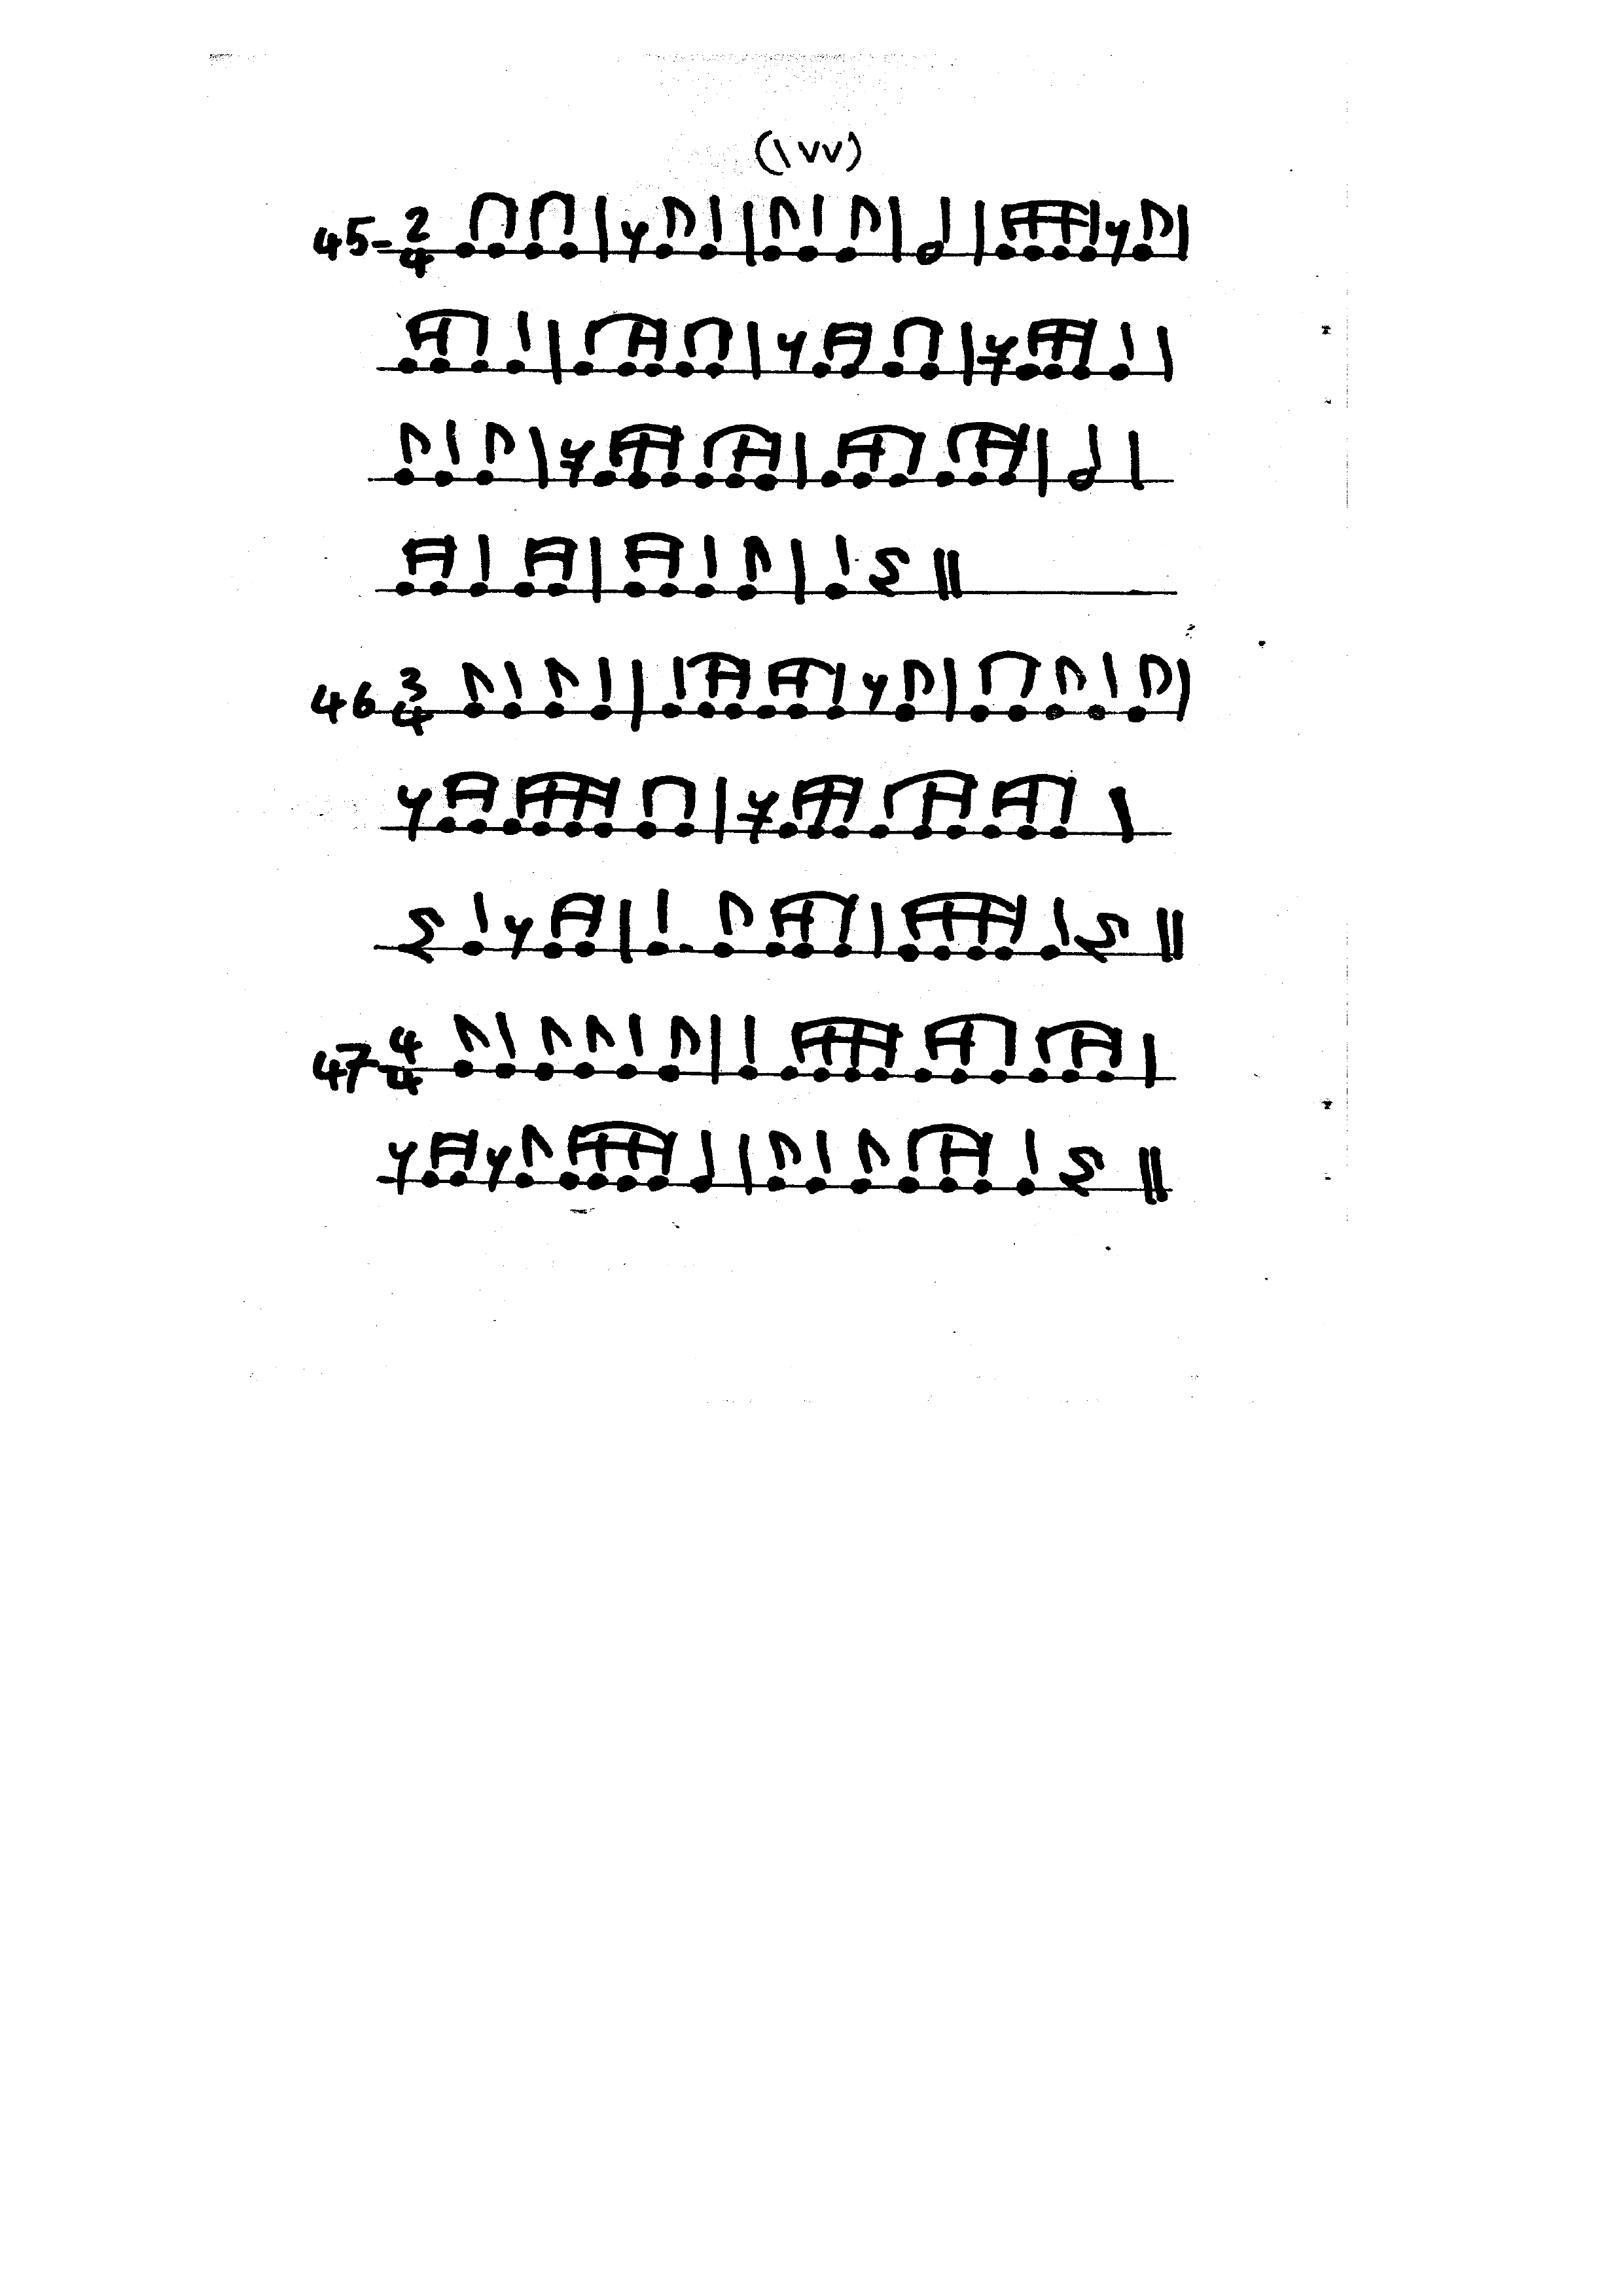 (١٧٧)
45- 2/4
46 3/4
47- 4/4